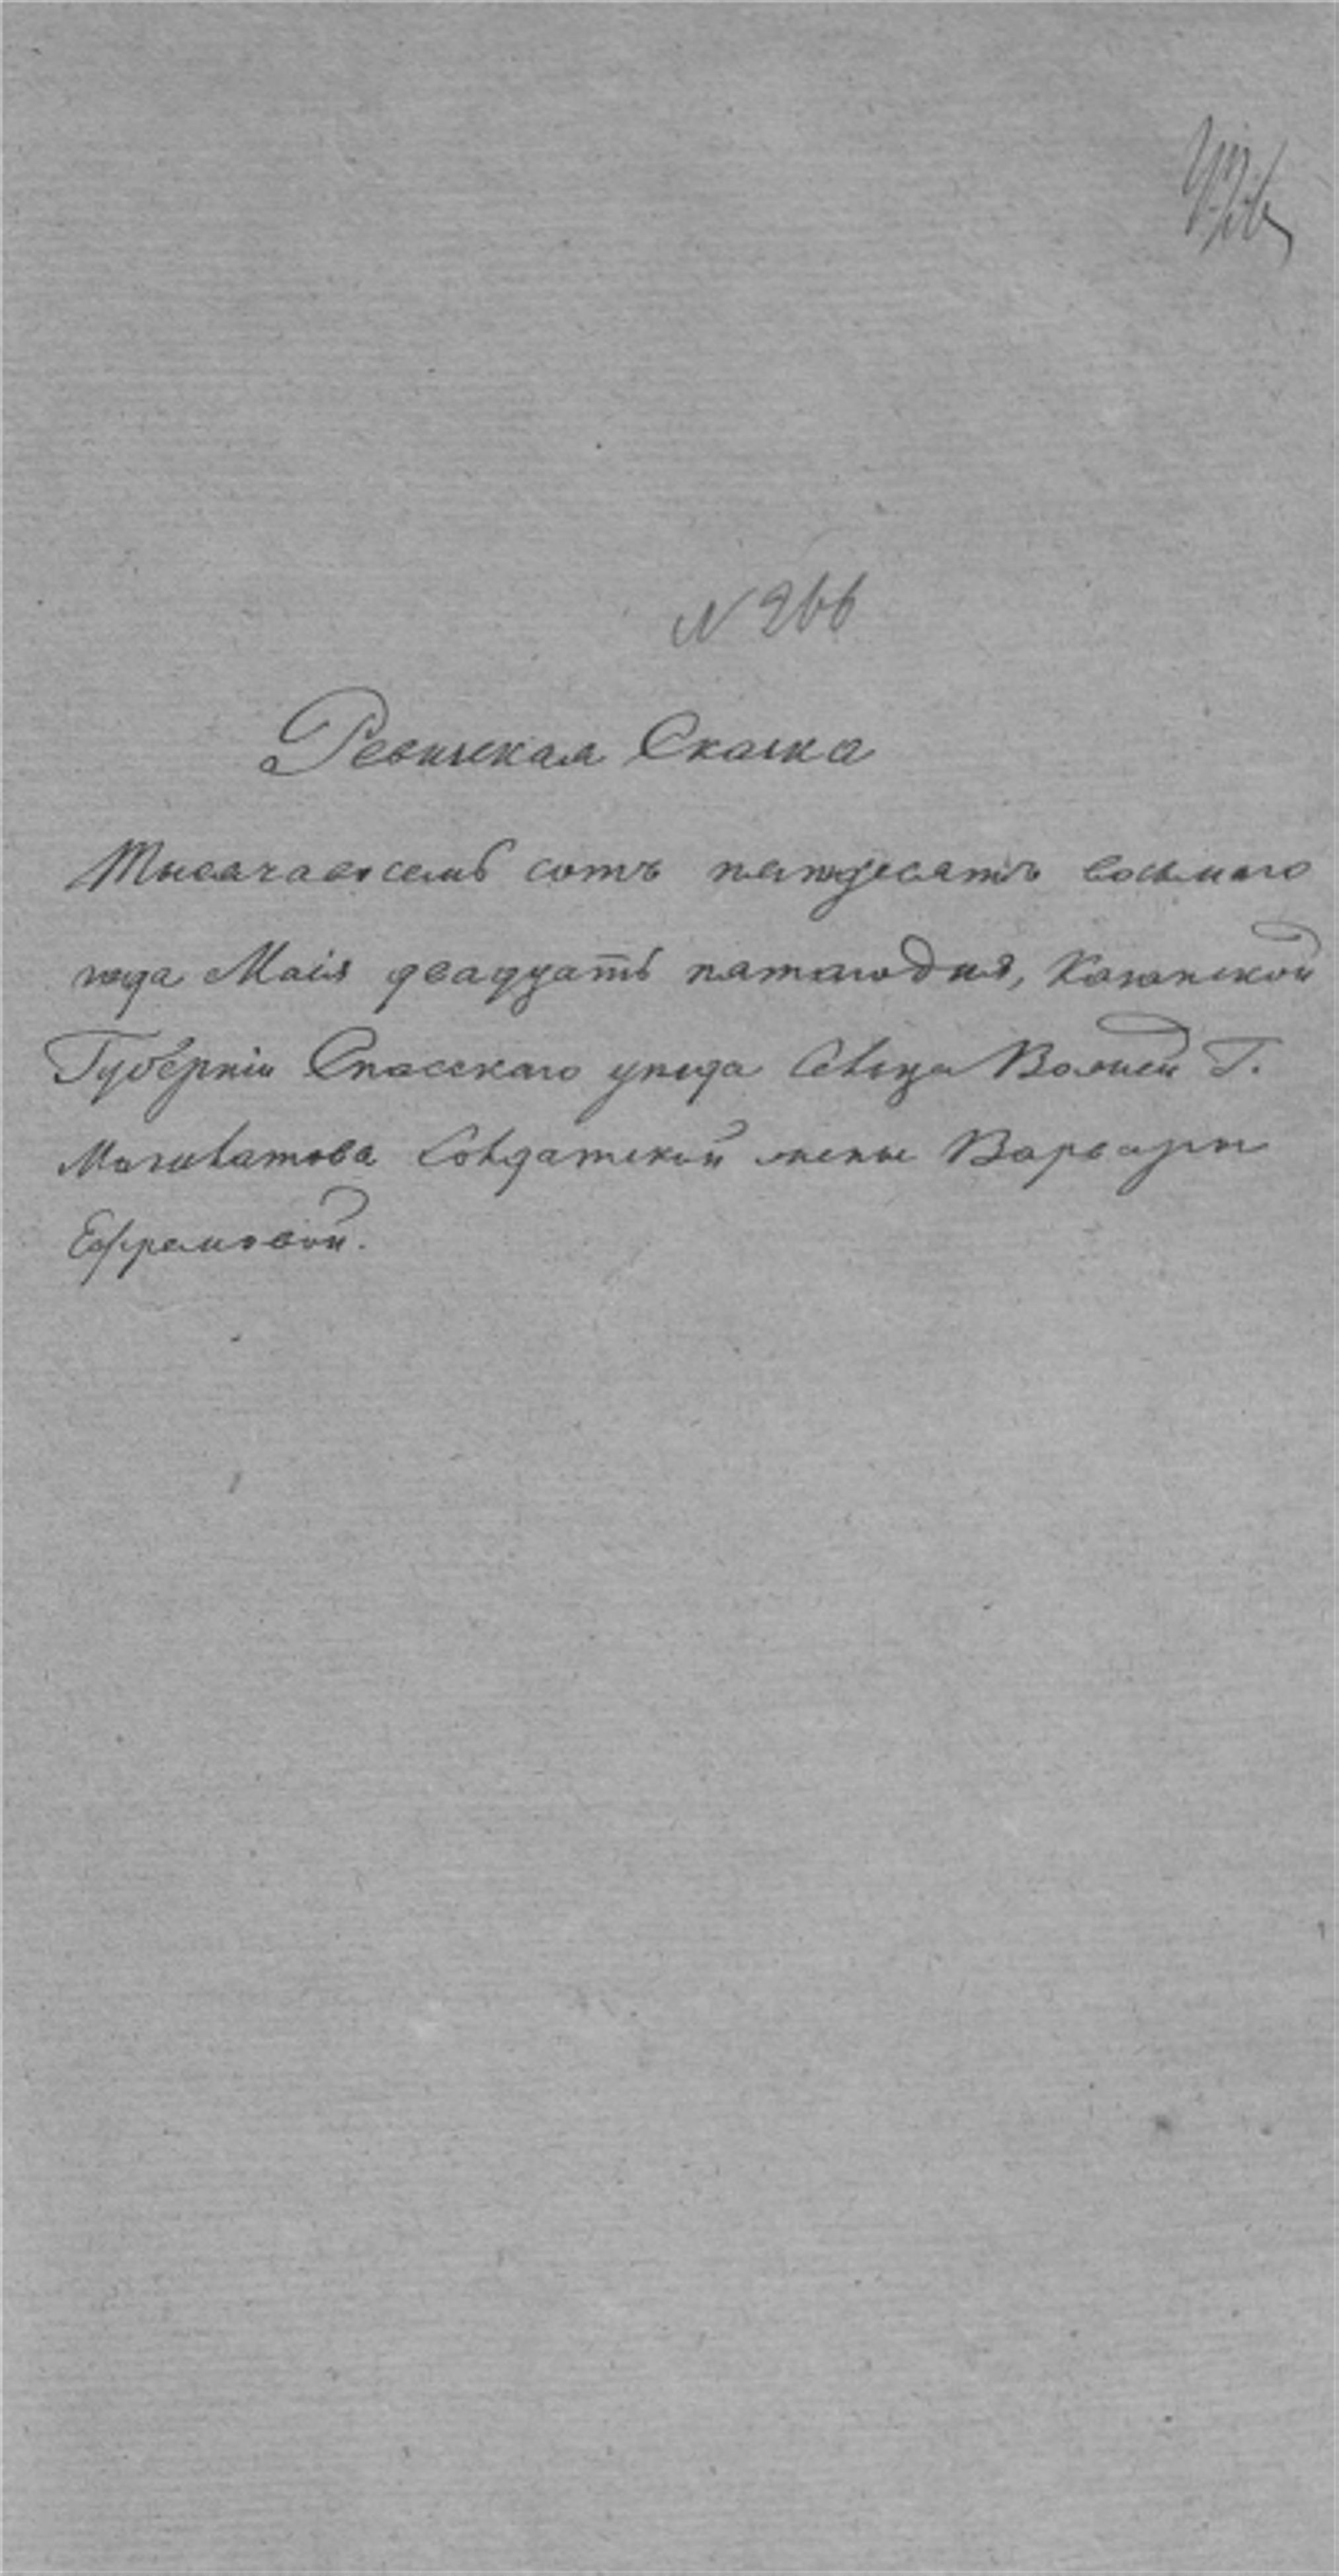 N 266
Ревизская Сказка
Тысяча восемь сотъ пятьдесятъ восьмаго
года Маія двадцать пятаго дня, Казанской
Губерніи Спасскаго уезда Сельца Г.
Солдатской жены Варвары
Ефремовой.